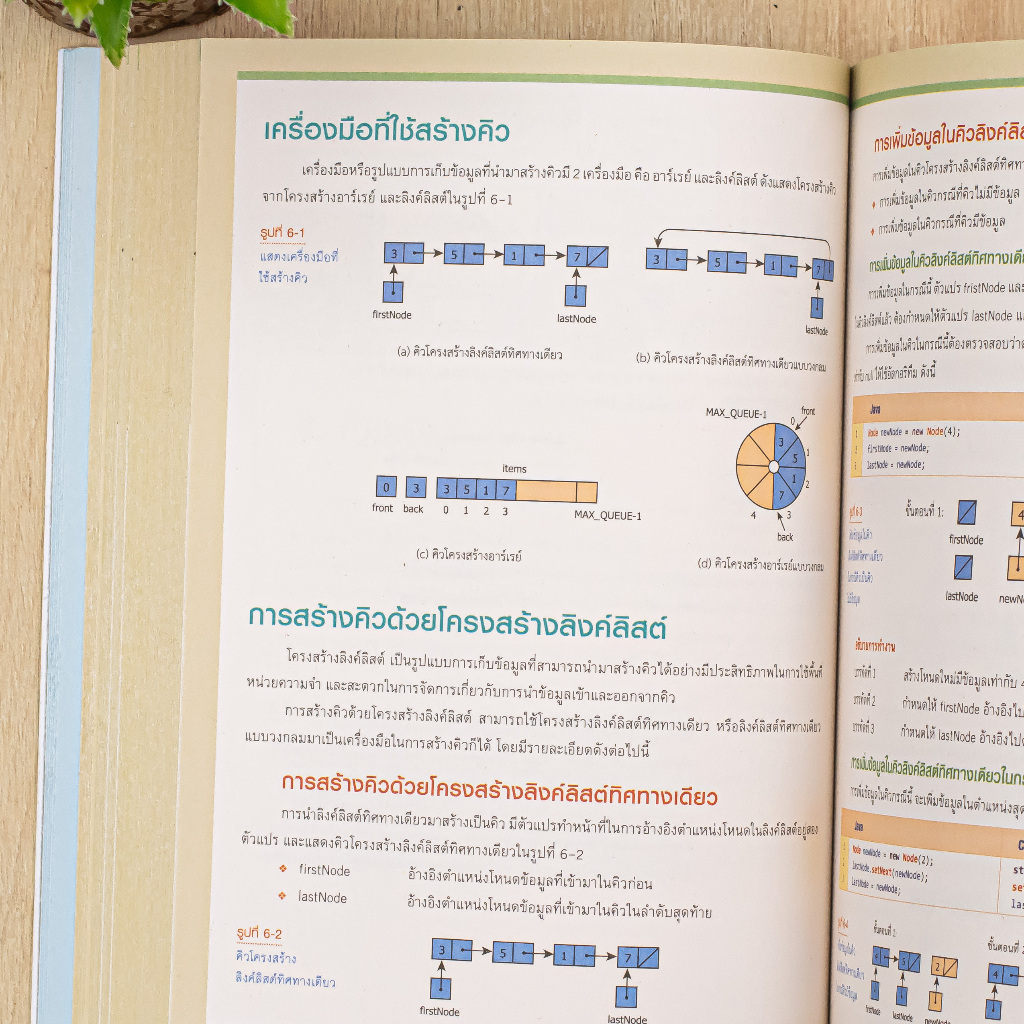 เครื่องมือที่ใช้สร้างคิว
เครื่องมือหรือรูปแบบการเก็บข้อมูลที่นำมาสร้างคิวมี 2 เครื่องมือ คือ อาร์เรย์ และลิงค์ลิสต์ ดังแสดงโครงสร้างคิว
จากโครงสร้างอาร์เรย์ และลิงค์ลิสต์ในรูปที่ 6-1
รูปที่ 6-1
แสดงเครื่องมือที่
ใช้สร้างคิว
3 5 1 7
firstNode lastNode
(a) คิวโครงสร้างลิงค์ลิสต์ทิศทางเดียว
3 5 1 7
lastNode
(b) คิวโครงสร้างลิงค์ลิสต์ทิศทางเดียวแบบวงกลม
items
0 3 3 5 1 7
front back 0 1 2 3 MAX_QUEUE-1
(c) คิวโครงสร้างอาร์เรย์
MAX_QUEUE-1 0 front
3 1
5
1 2
7
4 3
back
(d) คิวโครงสร้างอาร์เรย์แบบวงกลม
การสร้างคิวด้วยโครงสร้างลิงค์ลิสต์
โครงสร้างลิงค์ลิสต์ เป็นรูปแบบการเก็บข้อมูลที่สามารถนำมาสร้างคิวได้อย่างมีประสิทธิภาพในการใช้พื้นที่
หน่วยความจำ และสะดวกในการจัดการเกี่ยวกับการนำข้อมูลเข้าและออกจากคิว
การสร้างคิวด้วยโครงสร้างลิงค์ลิสต์ สามารถใช้โครงสร้างลิงค์ลิสต์ทิศทางเดียว หรือลิงค์ลิสต์ทิศทางเดียว
แบบวงกลมมาเป็นเครื่องมือในการสร้างคิวก็ได้ โดยมีรายละเอียดดังต่อไปนี้
การสร้างคิวด้วยโครงสร้างลิงค์ลิสต์ทิศทางเดียว
การนำลิงค์ลิสต์ทิศทางเดียวมาสร้างเป็นคิว มีตัวแปรทำหน้าที่ในการอ้างอิงตำแหน่งโหนดในลิงค์ลิสต์อยู่สอง
ตัวแปร และแสดงคิวโครงสร้างลิงค์ลิสต์ทิศทางเดียวในรูปที่ 6-2
❖ firstNode อ้างอิงตำแหน่งโหนดข้อมูลที่เข้ามาในคิวก่อน
❖ lastNode อ้างอิงตำแหน่งโหนดข้อมูลที่เข้ามาในคิวในลำดับสุดท้าย
รูปที่ 6-2
คิวโครงสร้าง
ลิงค์ลิสต์ทิศทางเดียว
3 5 1 7
firstNode lastNode
การเพิ่มข้อมูลในคิวลิงค์ลิส
การเพิ่มข้อมูลในคิวโครงสร้างลิงค์ลิสต์ทิศทา
❖ การเพิ่มข้อมูลในคิวกรณีที่คิวไม่มีข้อมูล
❖ การเพิ่มข้อมูลในคิวกรณีที่คิวมีข้อมูล
การเพิ่มข้อมูลในคิวลิงค์ลิสต์ทิศทางเดีย
การเพิ่มข้อมูลในกรณีนี้ ตัวแปร fristNode และ
ต้องกำหนดให้ตัวแปร lastNode
การเพิ่มข้อมูลในคิวในกรณีนี้ต้องตรวจสอบว่า
null ให้ใช้อัลกอริทึม ดังนี้
Java
1 Node newNode = new Node(4);
2 firstNode = newNode;
3 lastNode = newNode;
ขั้นตอนที่ 1: 4
firstNode
lastNode newN
อธิบายการทำงาน
บรรทัดที่ 1 สร้างโหนดใหม่มีข้อมูลเท่ากับ 4
บรรทัดที่ 2 กำหนดให้ firstNode อ้างอิงไป
บรรทัดที่ 3 กำหนดให้ lastNode อ้างอิงไป
การเพิ่มข้อมูลในคิวลิงค์ลิสต์ทิศทางเดียวในก
การเพิ่มข้อมูลในคิวกรณีนี้ จะเพิ่มข้อมูลในตำแหน่งสุด
Java C
1 Node newNode = new Node(2); st
2 lastNode.setNext(newNode); se
3 lastNode = newNode; las
ขั้นตอนที่ 1: ขั้นตอนที่ 2
4 5 2 4
firstNode lastNode newNode